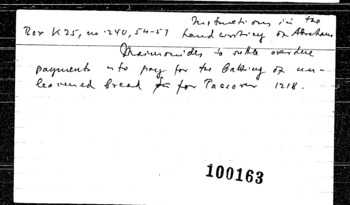 Instructions in the
Box K 25, no. 240, 54-57 handwriting of Abraham
Maimonides to settle overdue
payments and to pay for the baking of un-
leavened bread for Passover 1218.
100163